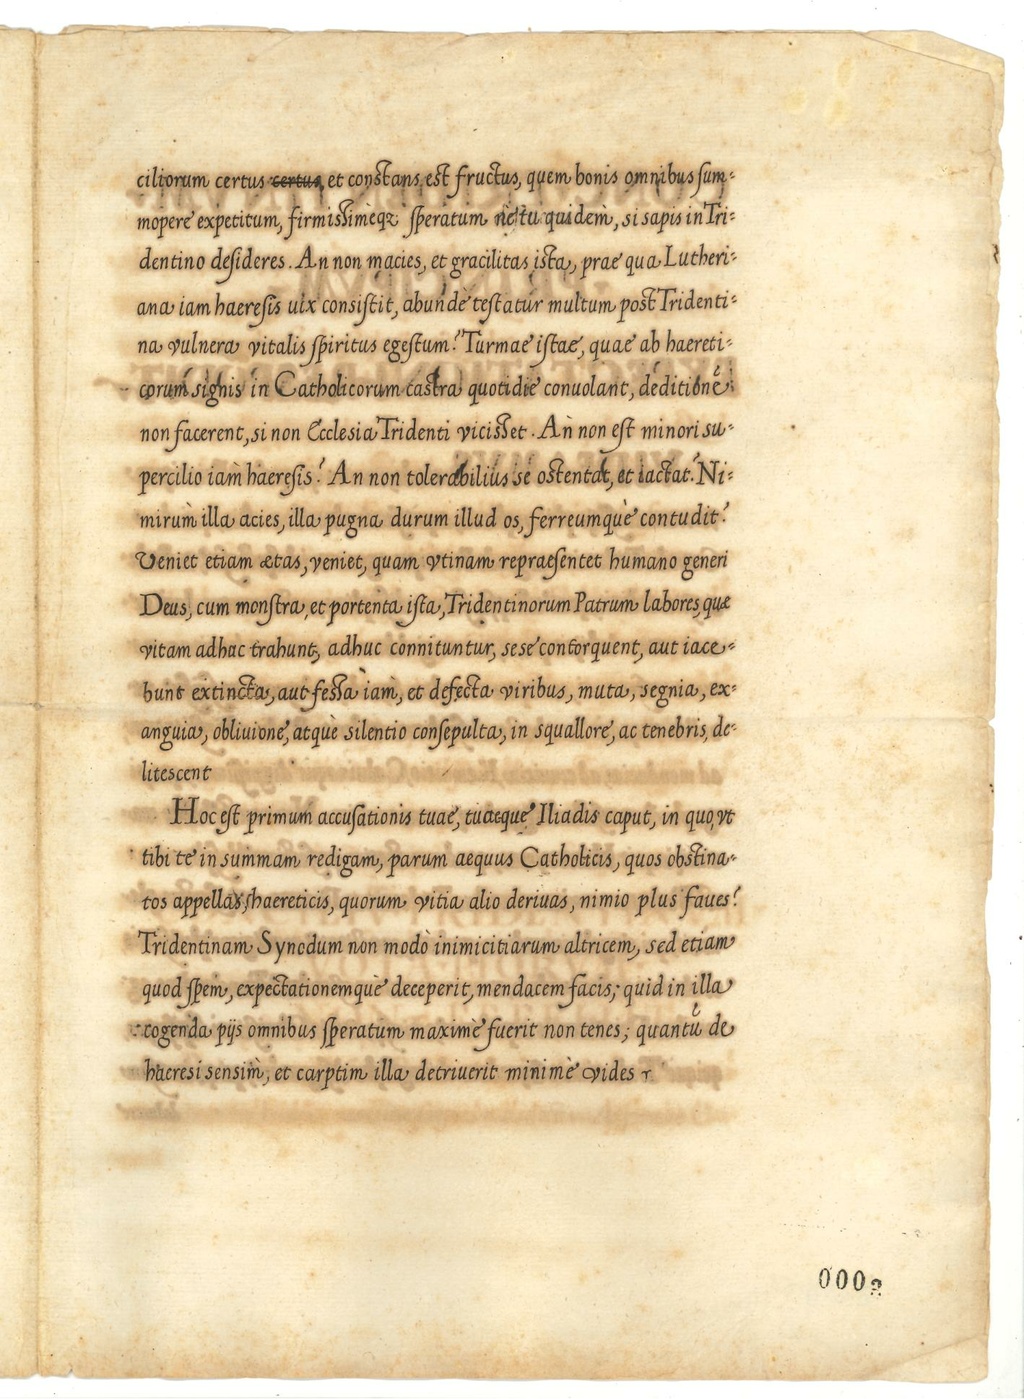 ciliorum certus certus, et constans, est fructus, quem bonis omnibus sum=
mopere expetitum, firmissimèq; speratum ne tu quidem, si sapis in Tri=
dentino desideres. An non macies, et gracilitas ista, prae qua Lutheri=
ana iam haeresis uix consistit, abundè testatur multum post Tridenti=
na vulnera vitalis spiritus egestum? Turmae istae, quae ab haereti=
corum signis in Catholicorum castra quotidie conuolant, deditionē
non facerent, si non Ecclesia Tridenti vicisset. An non est minori su=
percilio iam haeresis? An non tolerabilius se ostentat, et iactat? Ni=
mirum illa acies, illa pugna durum illud os, ferreumque contudit?
Veniet etiam aetas, veniet, quam vtinam repraesentet humano generi
Deus, cum monstra, et portenta ista, Tridentinorum Patrum labores, quae
vitam adhuc trahunt, adhuc connituntur, sese contorquent, aut iace=
bunt extincta, aut fessa iam, et defecta viribus, muta, segnia, ex=
anguia, obliuione, atque silentio consepulta, in squallore, ac tenebris, de=
litescent
Hoc est primum accusationis tuae, tuaeque Iliadis caput, in quo, vt
tibi te in summam redigam, parum aequus Catholicis, quos obstina=
tos appellas, haereticis, quorum vitia alio deriuas, nimio plus faues?
Tridentinam Synodum non modò inimicitiarum altricem, sed etiam
quod spem, expectationemque deceperit, mendacem facis; quid in illa
cogenda pijs omnibus speratum maximè fuerit non tenes; quantū de
haeresi sensim, et carptim illa detriuerit minimè vides
0002